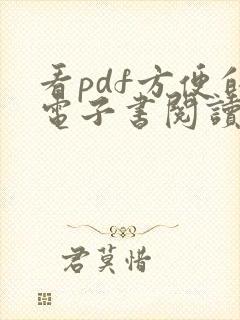 看pdf方便的
電子書閱讀
君莫惜